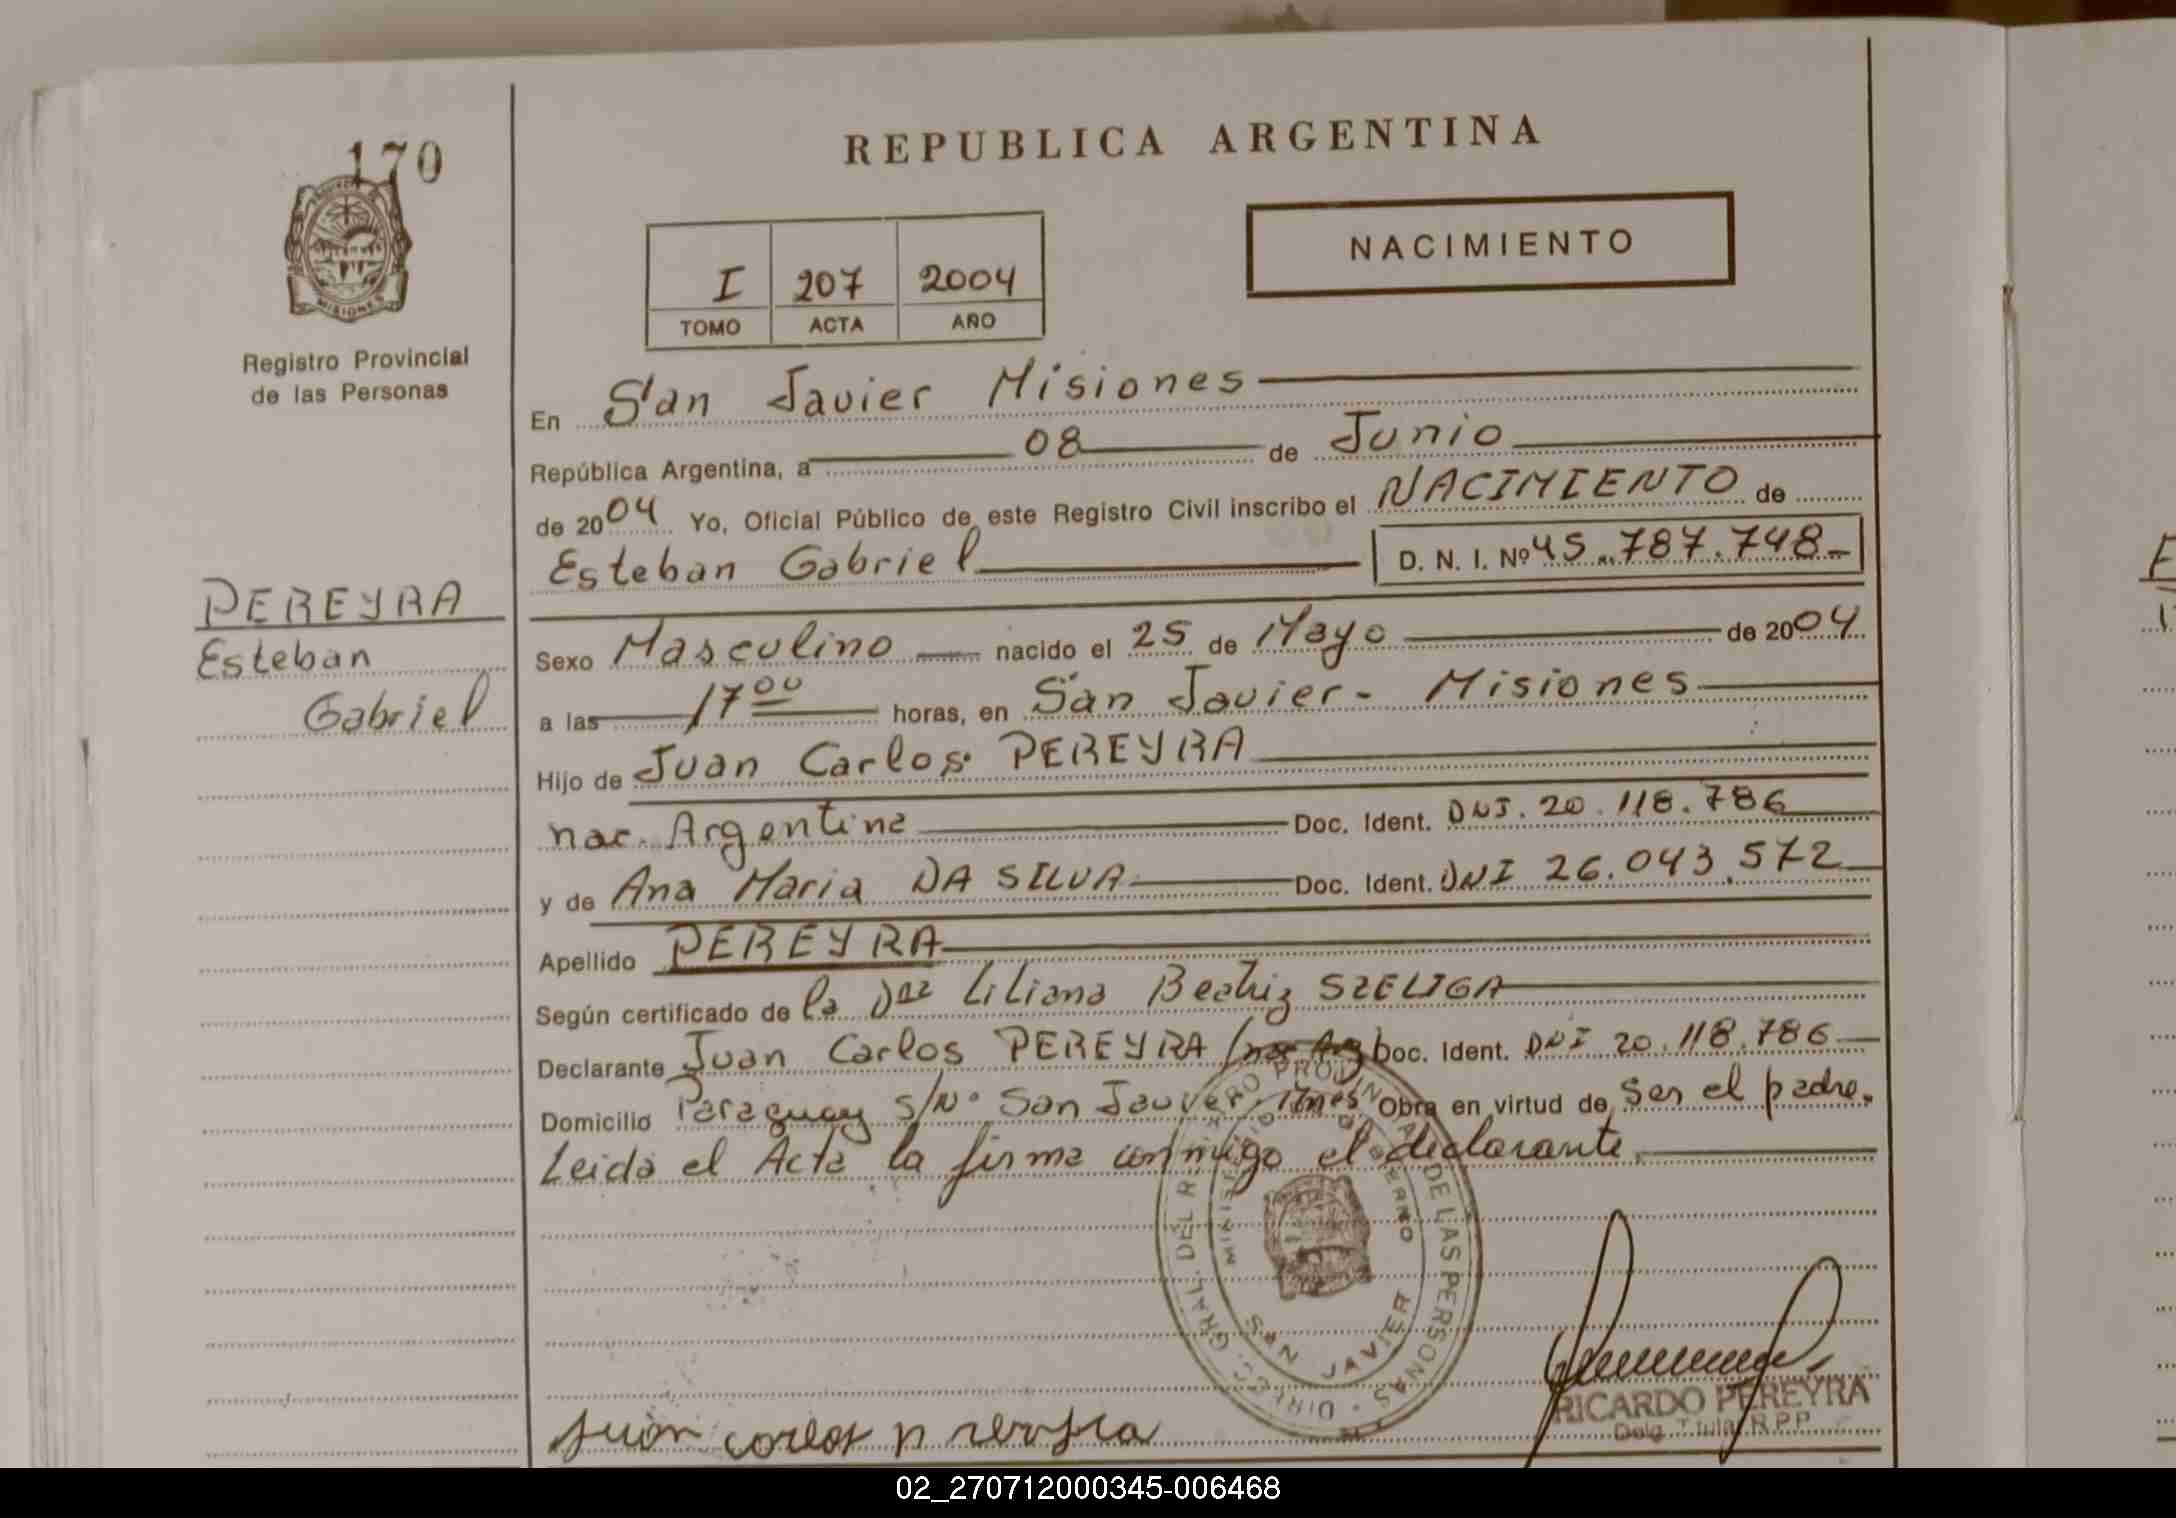 170
REPUBLICA ARGENTINA
NACIMIENTO
I 207 2004
TOMO ACTA AÑO
MISIONES
Registro Provincial
de las Personas
En San Javier Misiones
República Argentina, a 08 de Junio
de 2004 Yo, Oficial Público de este Registro Civil inscribo el NACIMIENTO de
Esteban Gabriel D. N. I. Nº 45.787.748
PEREYRA
Esteban
Gabriel
Sexo Masculino nacido el 25 de Mayo de 2004
a las 17 00 horas, en San Javier - Misiones
Hijo de Juan Carlos PEREYRA
nac. Argentina Doc. Ident. DNI. 20.118.786
y de Ana Maria DA SILVA Doc. Ident. DNI 26.043.572
Apellido PEREYRA
Según certificado de la Dra Liliana Beatriz SZELIGA
Declarante Juan Carlos PEREYRA (nac Arg) Doc. Ident. DNI 20.118.786
Domicilio Paraguay s/Nº San Javier, Mnes Obra en virtud de ser el padre.
Leida el Acta la firma conmigo el declarante.
DIREC. GRAL. DEL REGISTRO PROVINCIAL DE LAS PERSONAS
MINISTERIO DE GOBIERNO
SAN JAVIER
RICARDO PEREYRA
Deleg. Titular R.P.P.
Juan carlos pereyra
02_270712000345-006468